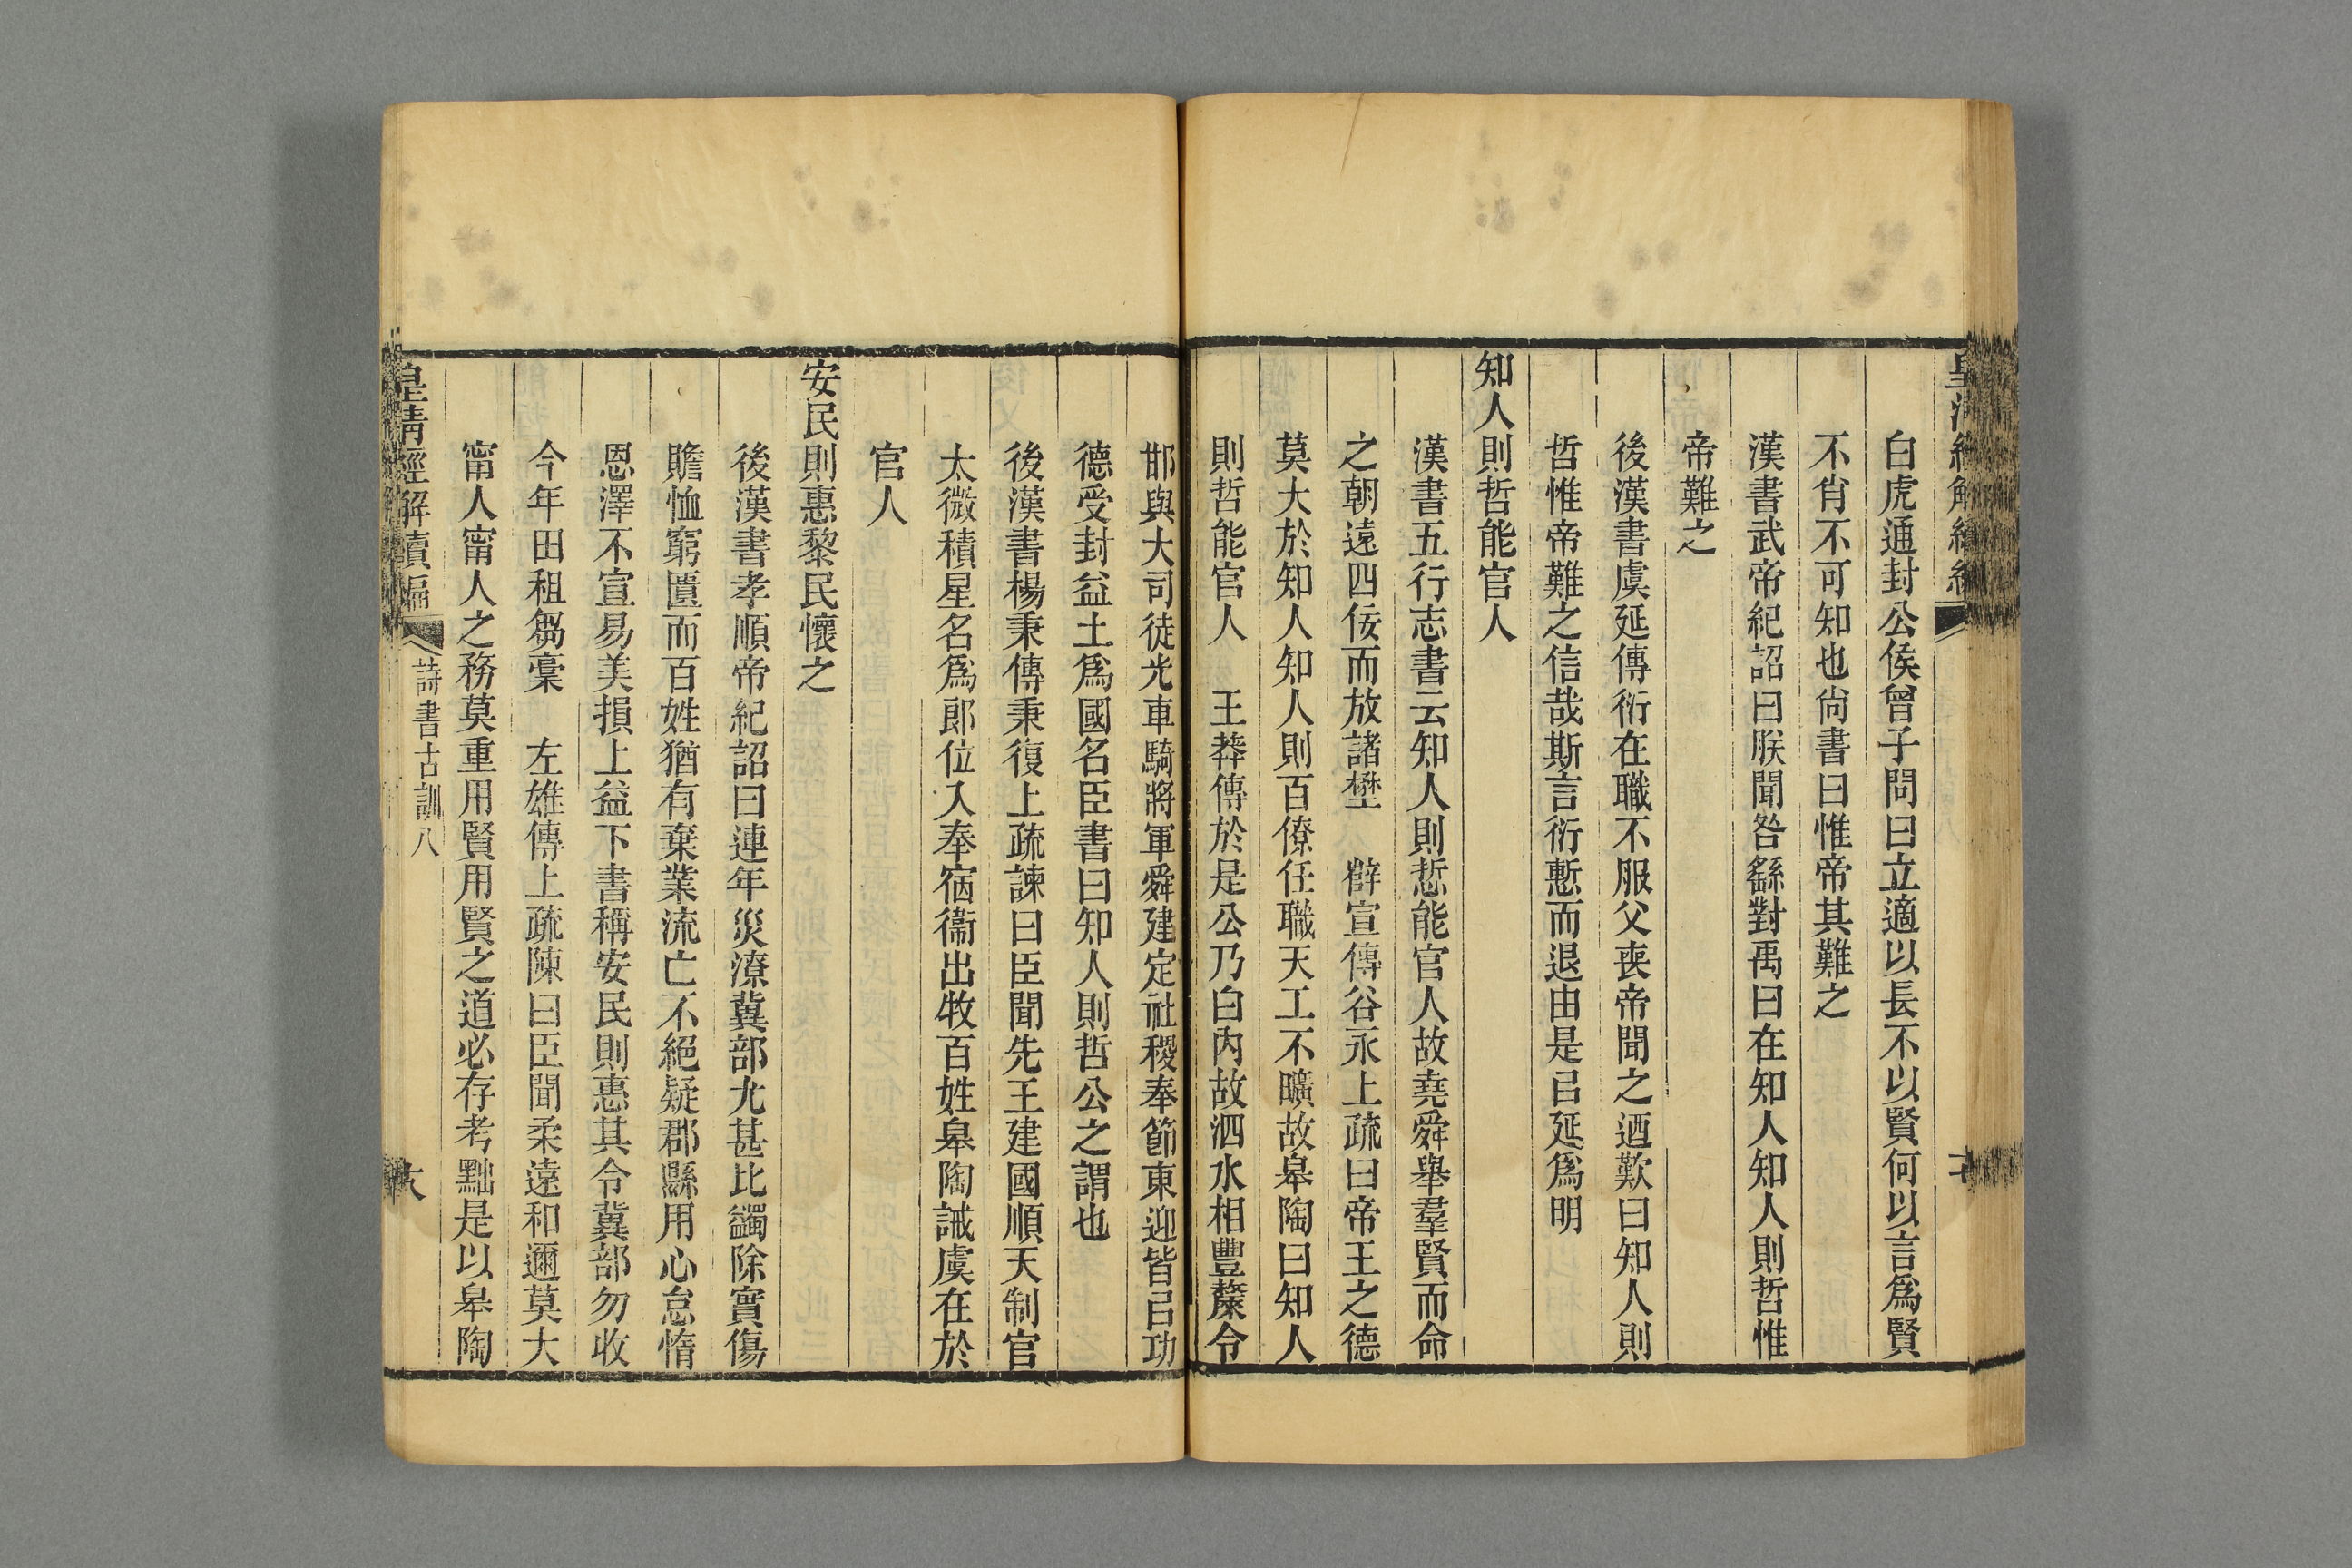 白虎通封公侯曾子問曰立適以長不以賢何以言為賢
不肖不可知也尚書曰惟帝其難之
漢書武帝紀詔曰朕聞咎繇對禹曰在知人知人則哲惟
帝難之
後漢書虞延傳衍在職不服父喪帝聞之迺歎曰知人則
哲惟帝難之信哉斯言衍慙而退由是㠯延爲明
知人則哲能官人
漢書五行志書云知人則悊能官人故堯舜舉羣賢而命
之朝遠四佞而放諸壄　薛宣傳谷永上疏曰帝王之德
莫大於知人知人則百僚任職天工不曠故皋陶曰知人
則哲能官人　王莽傳於是公乃白內故泗水相豐斄令
邯與大司徒光車騎將軍舜建定社稷奉節東迎皆㠯功
德受封益土爲國名臣書曰知人則哲公之謂也
後漢書楊秉傳秉復上疏諫曰臣聞先王建國順天制官
太微積星名爲郎位入奉宿衞出牧百姓皋陶誡虞在於
官人
安民則惠黎民懷之
後漢書孝順帝紀詔曰連年災潦冀部尤甚比蠲除實傷
贍恤窮匱而百姓猶有棄業流亡不絕疑郡縣用心怠惰
恩澤不宣易美損上益下書稱安民則惠其令冀部勿收
今年田租芻稾　左雄傳上疏陳曰臣聞柔遠和邇莫大
甯人甯人之務莫重用賢用賢之道必存考黜是以皋陶
皇清經解續編
詩書古訓八